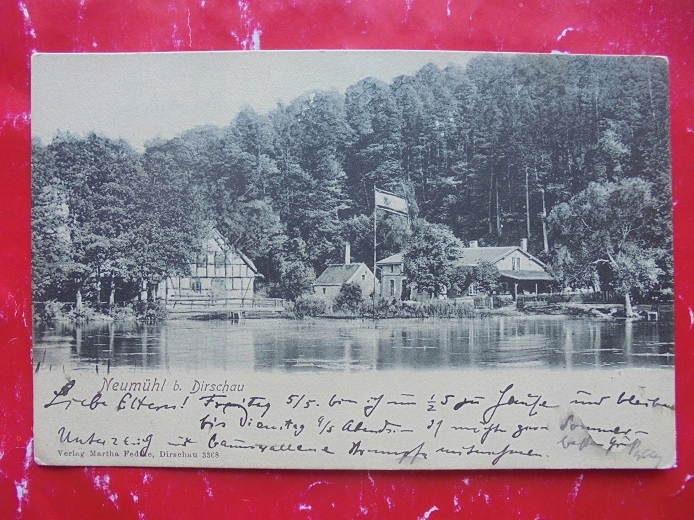 Neumühl b. Dirschau
Liebe Eltern! Freitag 5/5. bin ich um ½5 zu Hause und bleibe
bis Dienstag 9/5 Abends.
Unterzeug baumwollene Strümpfe mitnehmen.
Verlag Martha Dirschau 3368